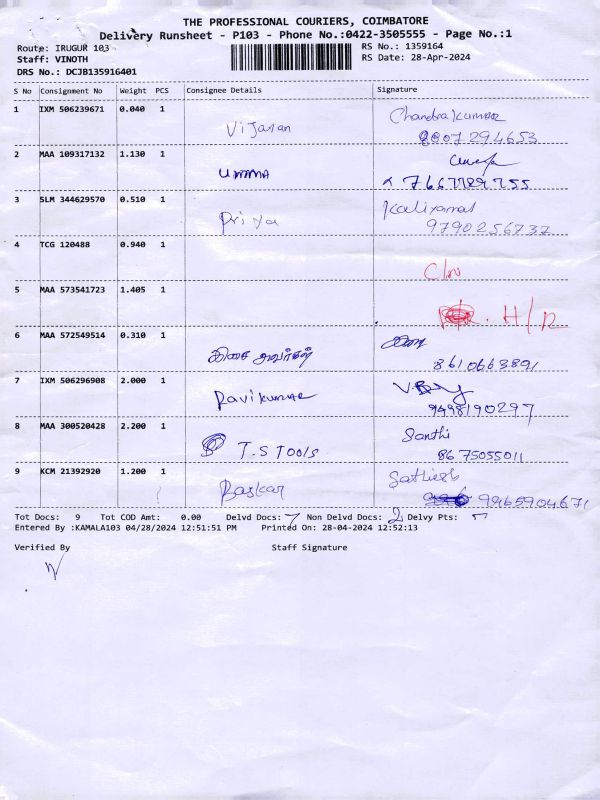 THE PROFESSIONAL COURIERS, COIMBATORE
Delivery Runsheet - P103 - Phone No.:0422-3505555 - Page No.:1
Route: IRUGUR 103
RS No.: 1359164
Staff: VINOTH
RS Date: 28-Apr-2024
DRS No.: DCJB135916401
S No Consignment No Weight PCS Consignee Details Signature
1 IXM 506239671 0.040 1 Chandrakumar
Vijayan 8807294653
2 MAA 109317132 1.130 1
umma
3 SLM 344629570 0.510 1 Kaliyamal
Priya 9790256737
4 TCG 120488 0.940 1
5 MAA 573541723 1.405 1
H/R
6 MAA 572549514 0.310 1
இசை அவர்கள் 8610663891
7 IXM 506296908 2.000 1
Ravikumar 9498190297
8 MAA 300520428 2.200 1 Santhi
T.S Tools 8675055011
9 KCM 21392920 1.200 1 Sathiesh
Baskar 9965904671
Tot Docs: 9 Tot COD Amt: 0.00 Delvd Docs: 7 Non Delvd Docs: 2 Delvy Pts:
Entered By :KAMALA103 04/28/2024 12:51:51 PM Printed On: 28-04-2024 12:52:13
Verified By Staff Signature